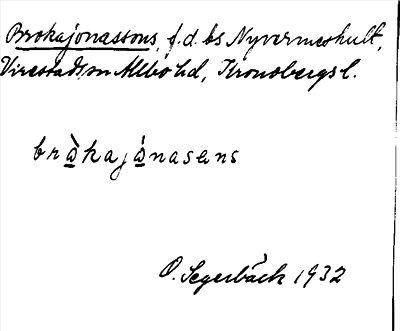 Brokajonassons, f.d. bs Nyvermeshult,
Virestads sn Allbo hd, Kronobergs l.
bròkajónasens
O. Segerbäck 1932